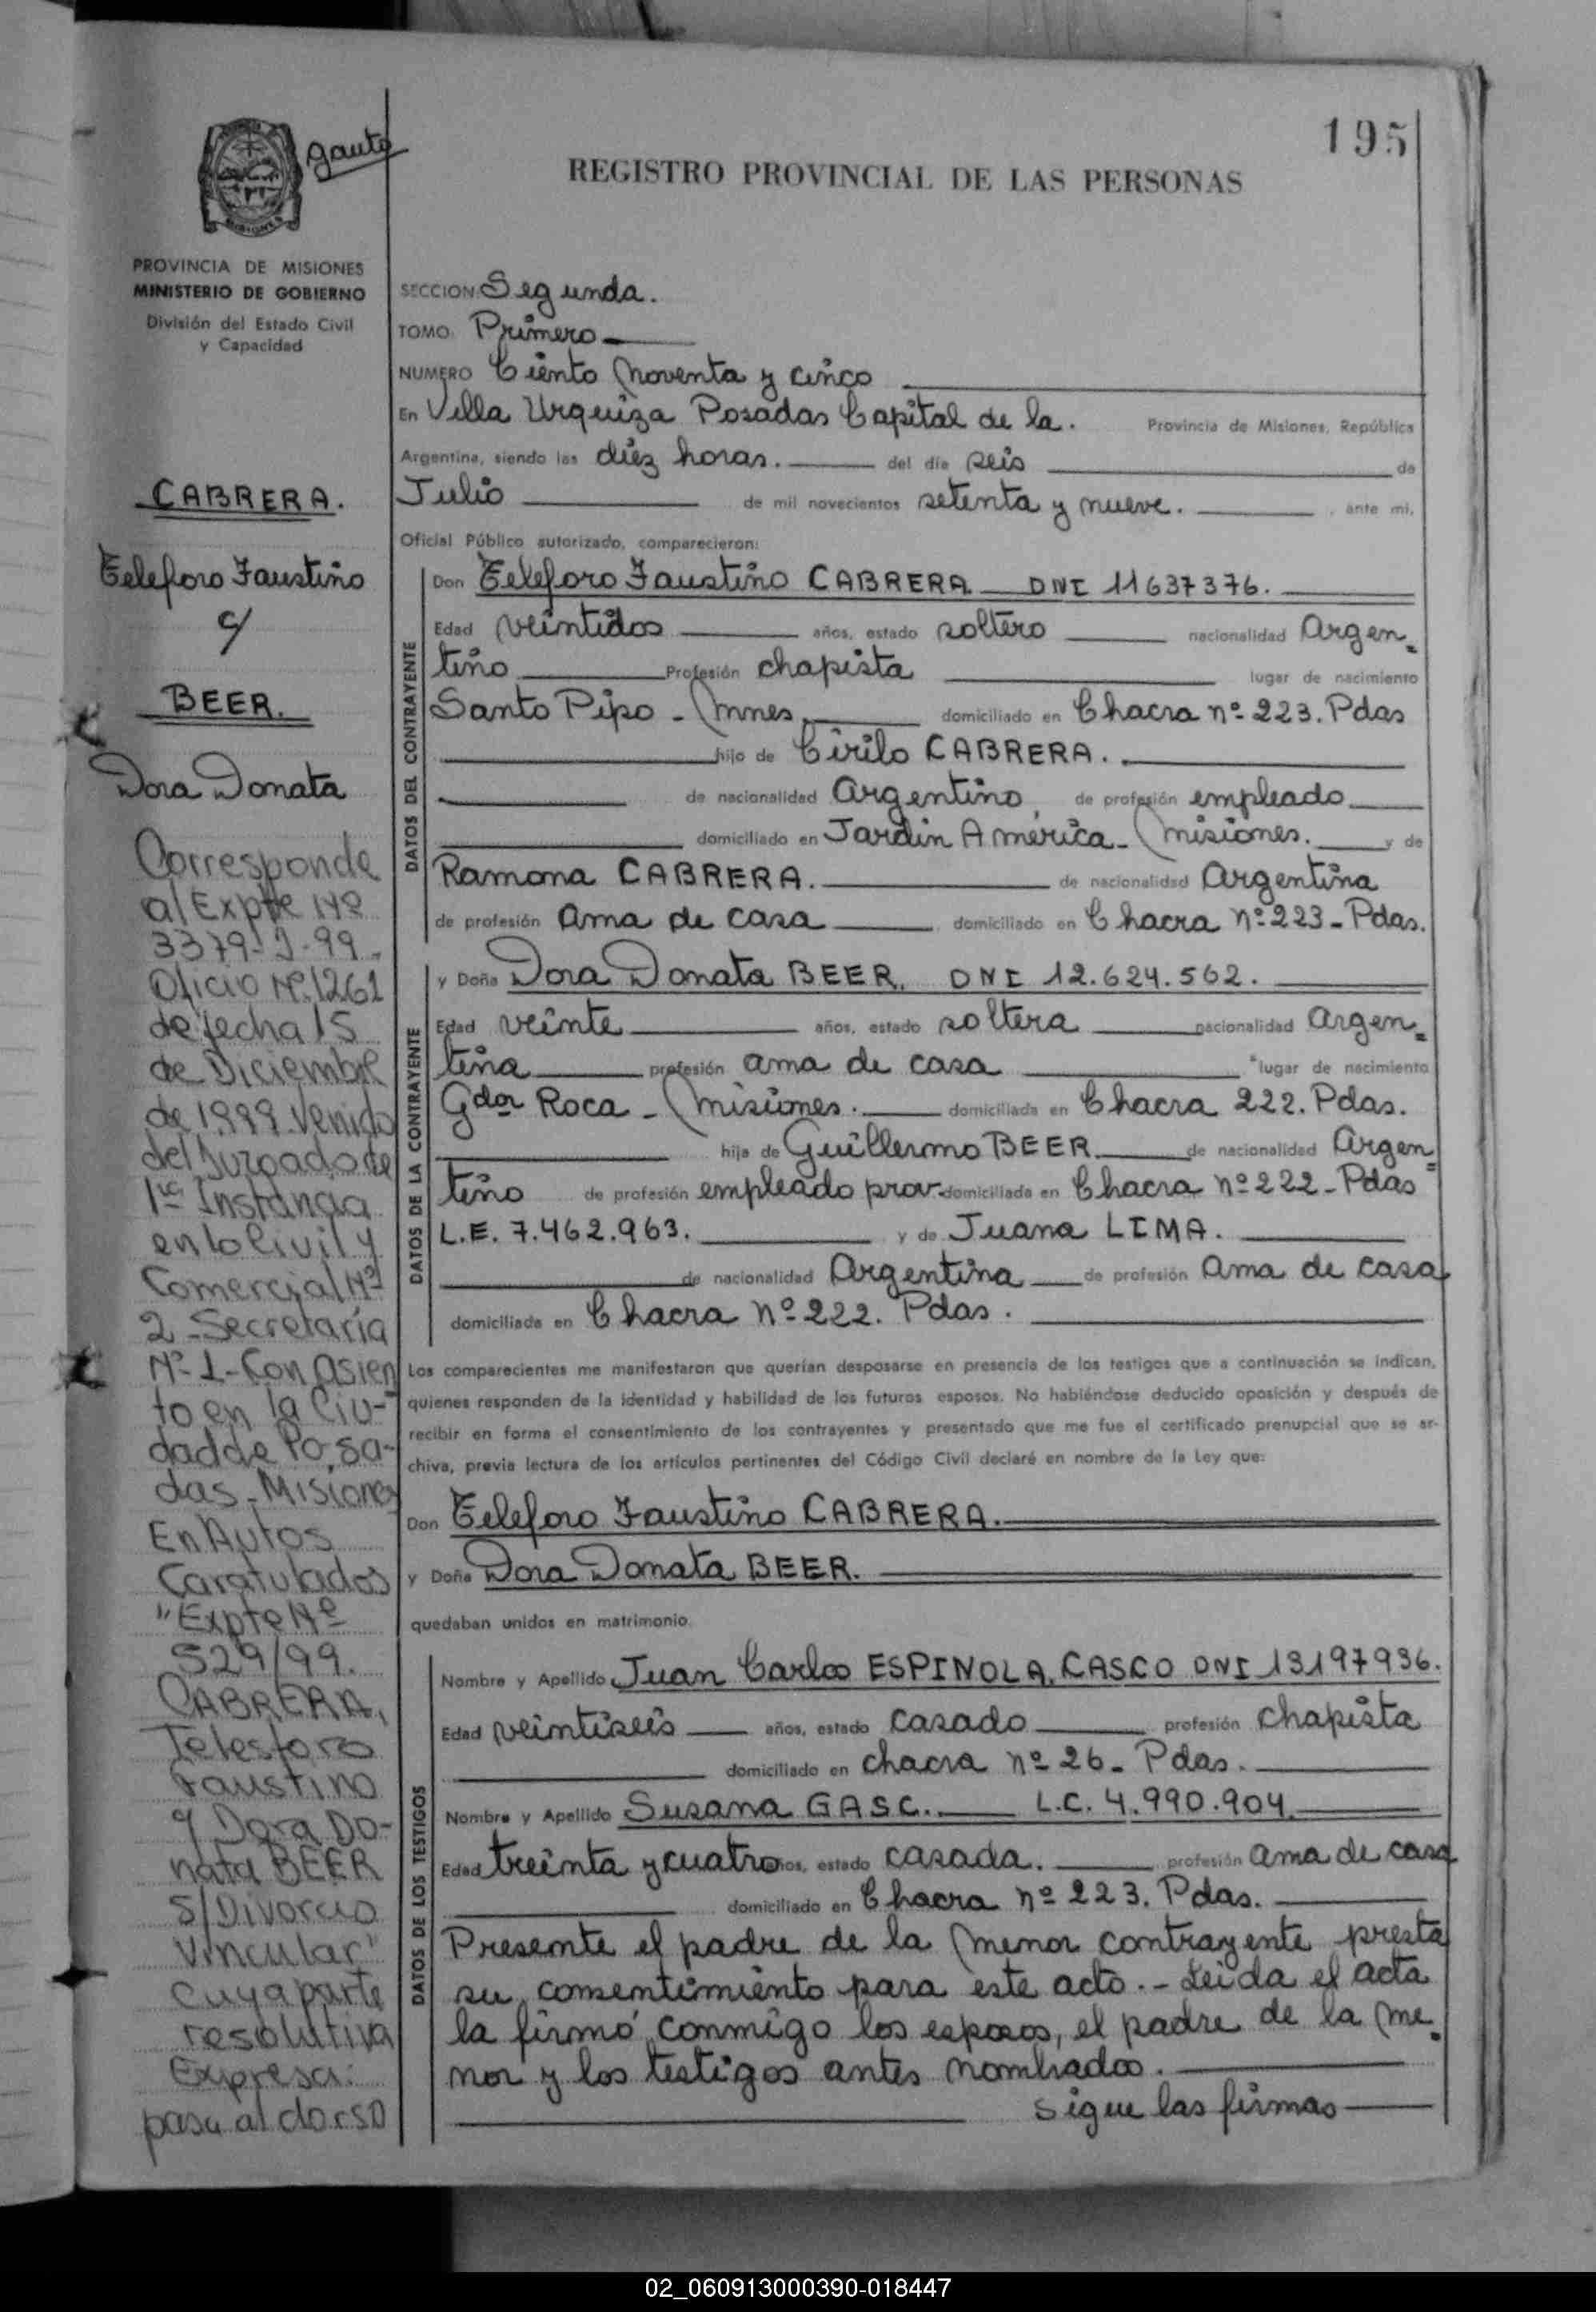 195
gauto
REGISTRO PROVINCIAL DE LAS PERSONAS
MISIONES
PROVINCIA DE MISIONES
MINISTERIO DE GOBIERNO
División del Estado Civil
y Capacidad
CABRERA.
Telesforo Faustino
c/
BEER.
Dora Donata
Corresponde
al Expte Nº
3379-J-99.-
Oficio Nº. 1261
de fecha 15
de Diciembre
de 1.999. Venido
del Juzgado de
1ra Instancia
en lo Civil y
Comercial Nº
2-Secretaría
Nº-1-Con Asien
to en la Ciu-
dad de Posa-
das-Misiones
En Autos
Caratulados
"Expte Nº
529/99.
CABRERA,
Telesforo
Faustino
y Dora Do-
nata BEER
S/Divorcio
Vincular"
Cuya parte
resolutiva
Expresa:
pasa al dorso
SECCION Segunda.
TOMO Primero
NUMERO Ciento Noventa y cinco
En Villa Urquiza Posadas Capital de la. Provincia de Misiones, República
Argentina, siendo las diez horas. del día seis de
Julio de mil novecientos setenta y nueve. , ante mi,
Oficial Público autorizado, comparecieron:
DATOS DEL CONTRAYENTE
Don Telesforo Faustino CABRERA DNI 11637376.
Edad veintidos años, estado soltero nacionalidad Argen=
tino Profesión chapista lugar de nacimiento
Santo Pipo - Mnes. domiciliado en Chacra nº 223. Pdas
hijo de Cirilo CABRERA.
de nacionalidad Argentino de profesión empleado
domiciliado en Jardín América - Misiones. y de
Ramona CABRERA. de nacionalidad Argentina
de profesión ama de casa domiciliado en Chacra Nº 223 - Pdas.
DATOS DE LA CONTRAYENTE
y Doña Dora Donata BEER. DNI 12.624.562.
Edad veinte años, estado soltera nacionalidad Argen=
tina profesión ama de casa lugar de nacimiento
Gdor Roca - Misiones. domiciliada en Chacra 222. Pdas.
hija de Guillermo BEER de nacionalidad Argen=
tino de profesión empleado prov. domiciliada en Chacra nº 222 - Pdas
L.E. 7.462.963. y de Juana LIMA.
de nacionalidad Argentina de profesión Ama de casa
domiciliada en Chacra nº 222. Pdas.
Los comparecientes me manifestaron que querían desposarse en presencia de los testigos que a continuación se indican,
quienes responden de la identidad y habilidad de los futuros esposos. No habiéndose deducido oposición y después de
recibir en forma el consentimiento de los contrayentes y presentado que me fue el certificado prenupcial que se ar-
chiva, previa lectura de los artículos pertinentes del Código Civil declaré en nombre de la Ley que:
Don Telesforo Faustino CABRERA.
y Doña Dora Donata BEER.
quedaban unidos en matrimonio.
DATOS DE LOS TESTIGOS
Nombre y Apellido Juan Carlos ESPINOLA CASCO DNI 13197936.
Edad veintiseis años, estado casado profesión chapista
domiciliado en chacra nº 26 - Pdas.
Nombre y Apellido Susana GASC. L.C. 4.990.904.
Edad treinta y cuatro años, estado casada. profesión ama de casa
domiciliado en Chacra nº 223. Pdas.
Presente el padre de la menor contrayente presta
su consentimiento para este acto.- Leida el acta
la firmó conmigo los esposos, el padre de la me=
nor y los testigos antes nombrados.
Sigue las firmas
02_060913000390-018447